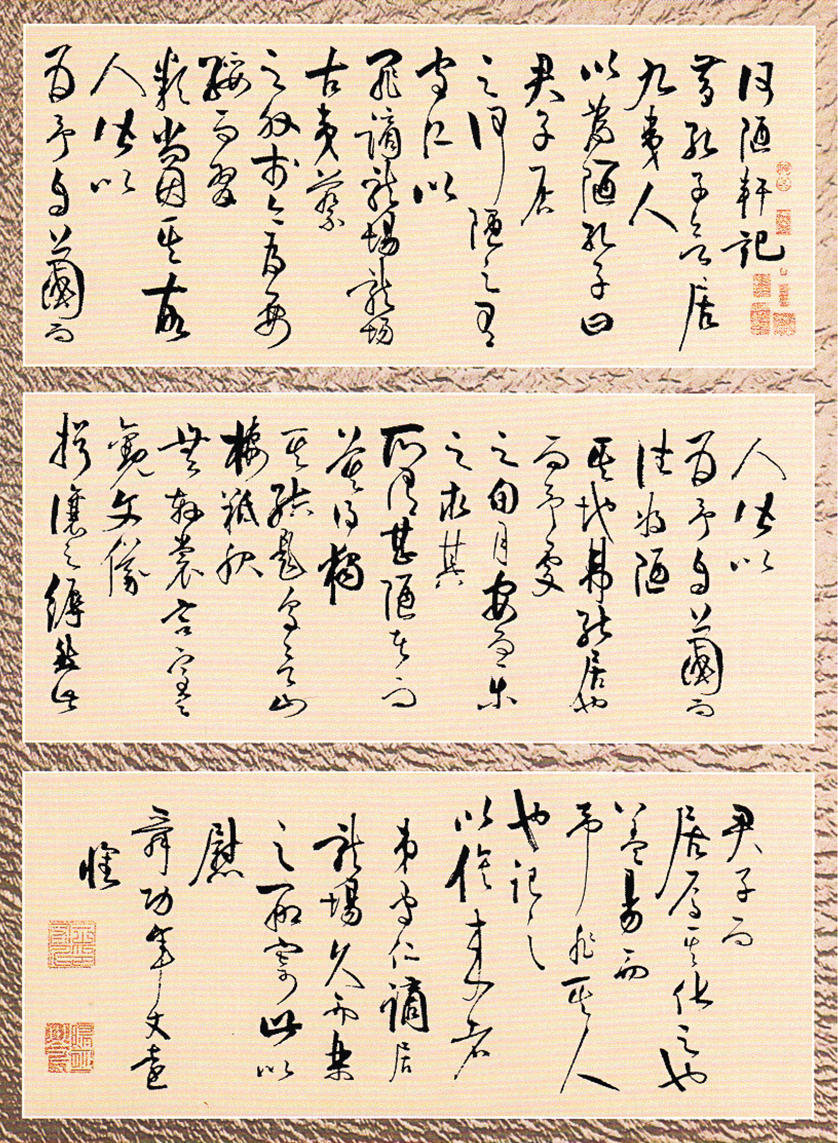 何陋軒記
昔孔子欲居
九夷人
以為陋孔子曰
君子居
之何陋之有
守仁以
罪謫龍場龍場
古夷蔡
之外於今為要
綏而習
類尚因其故
人皆以
為予自上國而
人皆以
為予自上國而
往將陋
其地弗能居也
而予處
之旬月安而樂
之求其
所謂甚陋者而
莫得獨
其結題鳥言山
棲羝服
無軒裳宮室之
觀文儀
揖讓之縟然此
君子而
居焉其化之也
蓋易而
予非其人
也記之
以俟來者
弟守仁謫居
龍場久而樂
之聊寄此以
慰
舜功年丈遠
懷